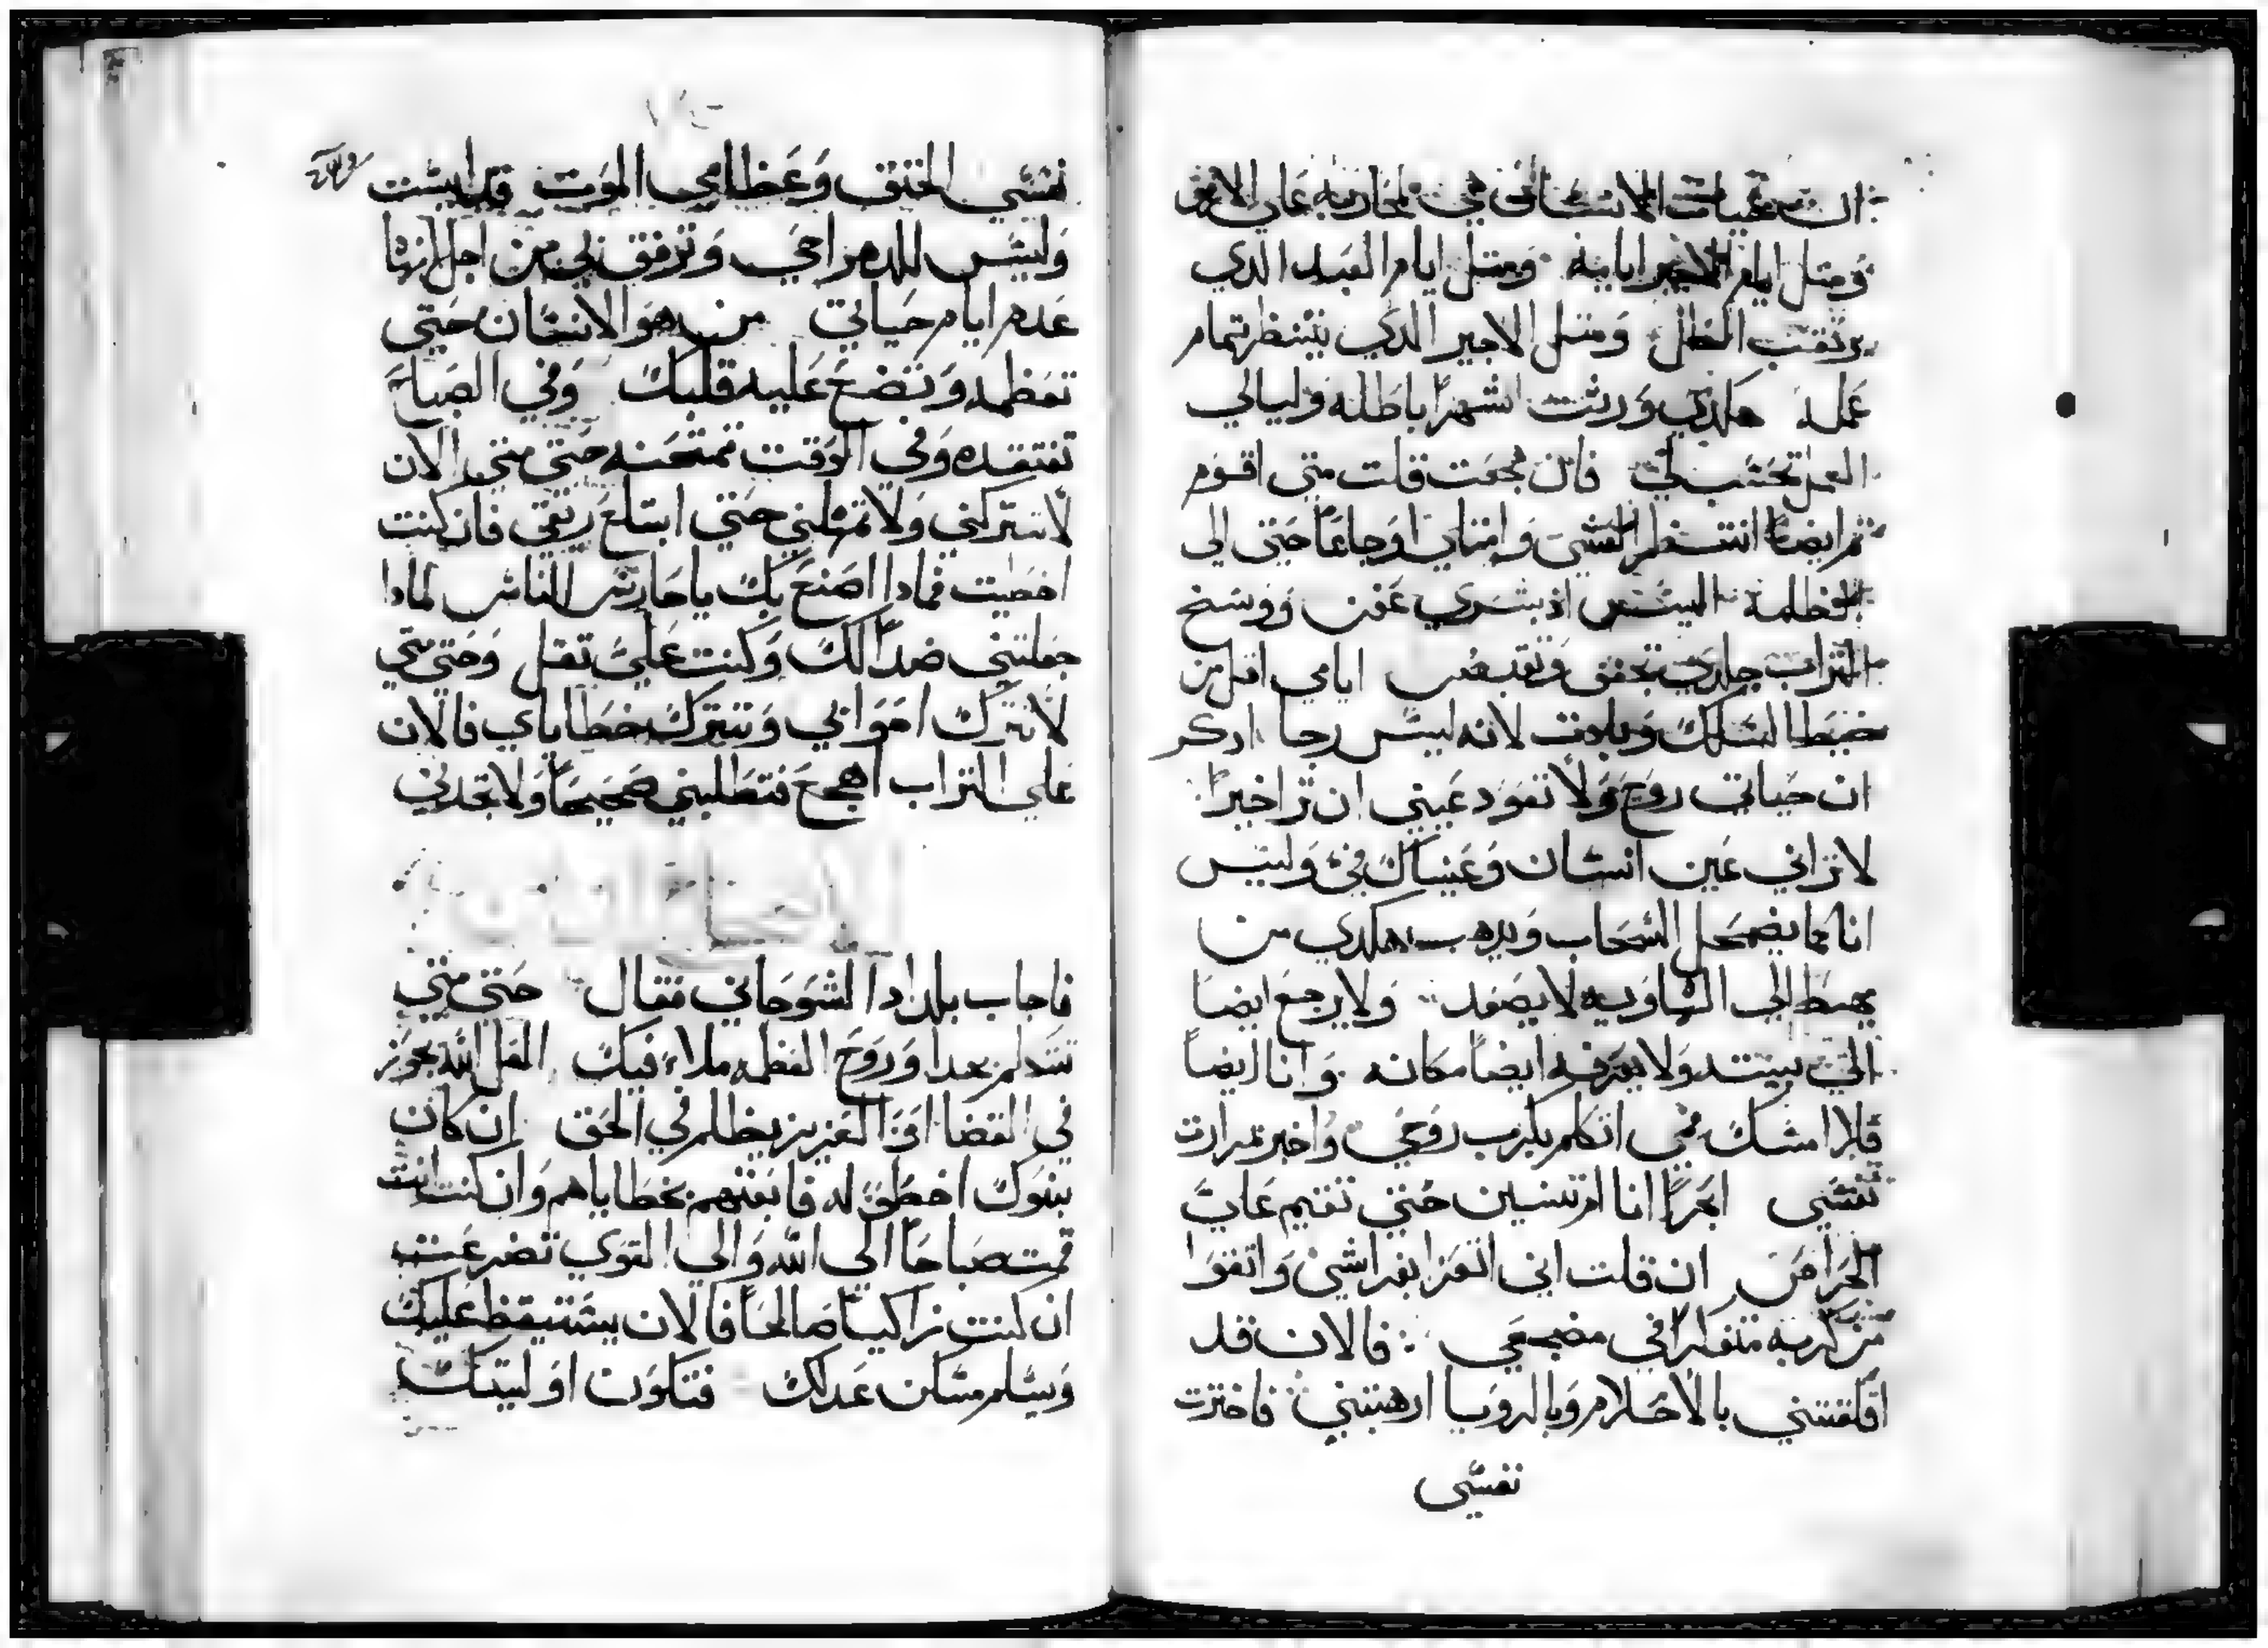 ان حيات الانسان في محاربه علي الارض
ومتل ايام الاجير ايامه ومتل ايام العبد الدي
يرتقب الظل ومتل الاجير الدي ينتظر تمام
عمله هكدي ورثت اشهراً باطله وليالي
العمل تحتسب لي فان هجعت قلت متي اقوم
ثم ايضاً انتظر العشي وامتلي اوجاعاً حتي الي
الظلمه البس اذ بشري عفن ووسخ
التراب جلدي تجفف وتقبض ايامي اقل من
خيط السلك وبادت لانه ليس رجا ادكر
ان حياتي روح ولا تعود عيني ان ترا خيراً
لا تراني عين انسان وعيناك في وليس
انا كما يضمحل السحاب ويدهب هكدي من
يهبط الي الهاويه لا يصعد ولا يرجع ايضا
الي بيته ولا يعرفه ايضاً مكانه وانا ايضاً
فلا امسك فمي اتكلم بكرب روحي واخبر بمرارت
نفسي ابحراً انا ام تنين حتي تقيم علي
الحرا من ان قلت اني اتعزا بفراشي واتقوا
من كربه متفكراً في مضجعي فالان قد
اقلقتني بالاحلام وبالرويا ارهبتني فاخترت
نفسي
نفسي الخنق وعظامي الموت قد ايست
وليس للدهر احيي وترفق بي من اجل انها
عدم ايام حياتي من هو الانسان حتي
تعظمه وتضع عليه قلبك وفي الصباح
تفتقده وفي الوقت تمتحنه حتي متي الان
لا تتركني ولا تمهلني حتي ابتلع ريقي فان كنت
اخطيت فمادا اصنع بك يا حارس الناس لمادا
جعلتني ضداً لك وكنت علي تقل وحتي متي
لا تترك اعوابي وتترك خطاياي فالان
علي التراب اهجع فتطلبني صحيحاً ولا تجدني
الاصحاح الثامن
فاجاب بلداد الشوحاني فقال حتي متي
تتكلم بهدا وروح العظمه ملاء فيك العل الله يجوز
في القضا او العزيز يظلم في الحق ان كان
بنوك اخطوا له فابعثهم بخطاياهم وان كنت انت
قمت صباحاً الي الله والي القوي تضرعت
ان كنت زاكياً صالحاً فالان يستيقظ عليك
ويسلم مسكن عدلك فتكون اوليتك